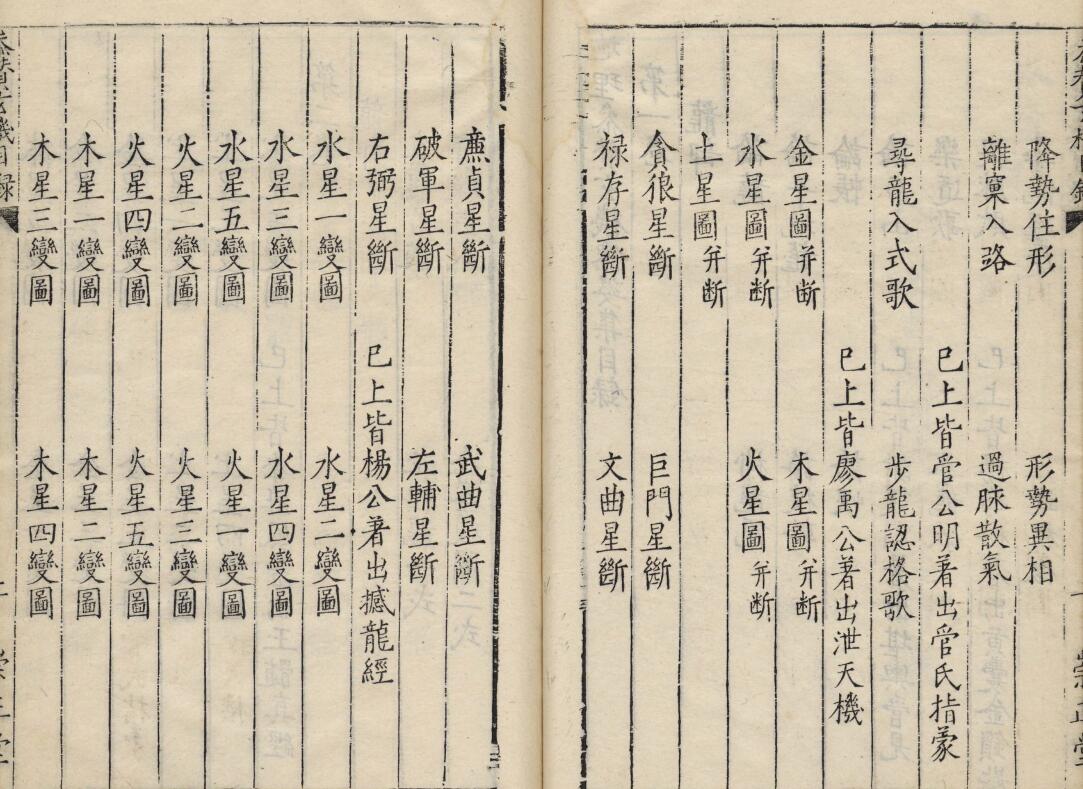 降勢住形　形勢異相
離窠入路　過脉散氣
巳上皆管公明著出管氏指蒙
尋龍入式歌　步龍認格歌
巳上皆廖禹公著出泄天機
金星圖并断　木星圖并断
水星圖并断　火星圖并断
土星圖并断
貪狼星斷　巨門星斷
禄存星斷　文曲星斷
廉貞星斷　武曲星斷
破軍星斷　左輔星斷
右弼星斷　巳上皆楊公著出撼龍經
水星一變圖　水星二變圖
水星三變圖　水星四變圖
水星五變圖　火星一變圖
火星二變圖　火星三變圖
火星四變圖　火星五變圖
木星一變圖　木星二變圖
木星三變圖　木星四變圖